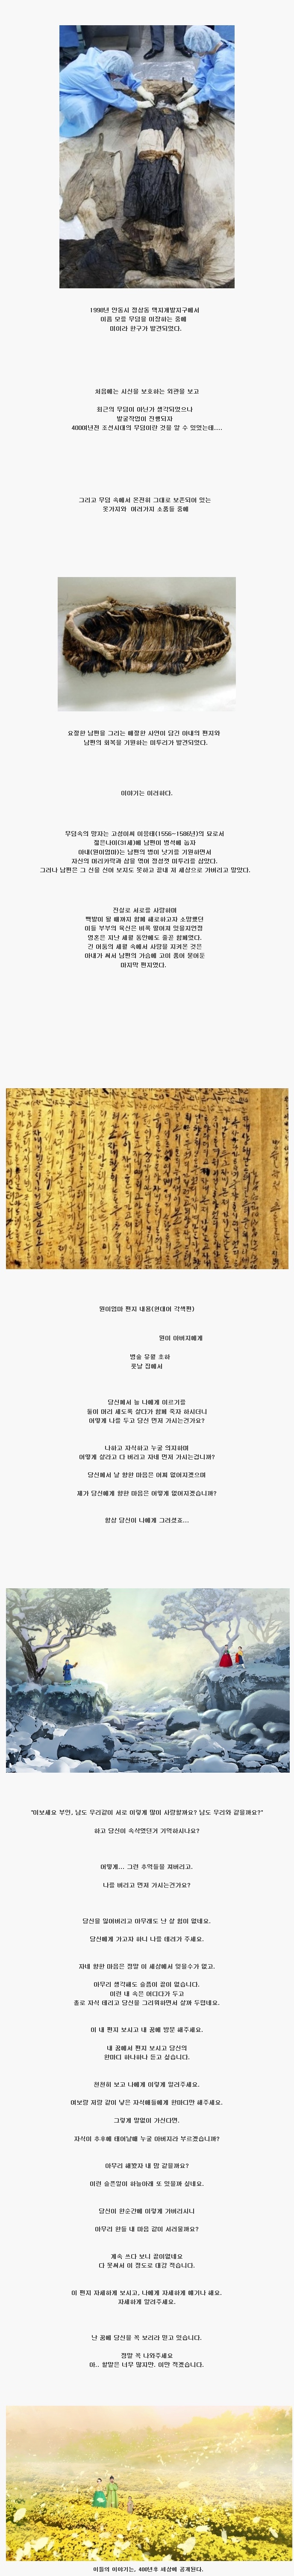 1998년 안동시 정상동 택지개발지구에서
이름 모를 무덤을 이장하는 중에
미이라 한구가 발견되었다.
처음에는 시신을 보호하는 외관을 보고
최근의 무덤이 아닌가 생각되었으나
발굴작업이 진행되자
400여년전 조선시대의 무덤이란 것을 알 수 있었는데....
그리고 무덤 속에서 온전히 그대로 보존되어 있는
옷가지와 여러가지 소품들 중에
요절한 남편을 그리는 애절한 사연이 담긴 아내의 편지와
남편의 회복을 기원하는 미투리가 발견되었다.
이야기는 이러하다.
무덤속의 망자는 고성이씨 이응태(1556~1586년)의 묘로서
젊은나이(31세)에 남편이 병석에 눕자
아내(원이엄마)는 남편의 병이 낫기를 기원하면서
자신의 머리카락과 삼을 엮어 정성껏 미투리를 삼았다.
그러나 남편은 그 신을 신어 보지도 못하고 끝내 저 세상으로 가버리고 말았다.
진실로 서로를 사랑하며
백발이 될 때까지 함께 해로하고자 소망했던
이들 부부의 육신은 비록 떨어져 있을지언정
영혼은 지난 세월 동안에도 줄곧 함께였다.
긴 어둠의 세월 속에서 사랑을 지켜온 것은
아내가 써서 남편의 가슴에 고이 품어 묻어둔
마지막 편지였다.
원이엄마 편지 내용(현대어 각색편)
원이 아버지에게
병술 유월 초하
룻날 집에서
당신께서 늘 나에게 이르기를
둘이 머리 세도록 살다가 함께 죽자 하시더니
어떻게 나를 두고 당신 먼저 가시는건가요?
나하고 자식하고 누굴 의지하며
어떻게 살라고 다 버리고 자네 먼저 가시는겁니까?
당신께서 날 향한 마음은 어찌 없어지겠으며
제가 당신에게 향한 마음은 어떻게 없어지겠습니까?
항상 당신이 나에게 그러셨죠...
"이보세요 부인, 남도 우리같이 서로 이렇게 많이 사랑할까요? 남도 우리와 같을까요?"
하고 당신이 속삭였던거 기억하시나요?
어떻게... 그런 추억들을 져버리고.
나를 버리고 먼저 가시는건가요?
당신을 잃어버리고 아무래도 난 살 힘이 없네요.
당신에게 가고자 하니 나를 데려가 주세요.
자네 향한 마음은 정말 이 세상에서 잊을수가 없고.
아무리 생각해도 슬픔이 끝이 없습니다.
이런 내 속은 어디다가 두고
홀로 자식 데리고 당신을 그리워하면서 살까 두렵네요.
이 내 편지 보시고 내 꿈에 방문 해주세요.
내 꿈에서 편지 보시고 당신의
한마디 하나하나 듣고 싶습니다.
천천히 보고 나에게 이렇게 말려주세요.
여보랑 저랑 같이 낳은 자식에들에게 한마디만 해주세요.
그렇게 말없이 가신다면.
자식이 추후에 태어날때 누굴 아버지라 부르겠습니까?
아무리 해봤자 내 맘 같을까요?
이런 슬픈일이 하늘아래 또 있을까 싶네요.
당신이 한순간에 이렇게 가버리시니
아무리 한들 내 마음 같이 서러울까요?
계속 쓰다 보니 끝이없네요
다 못써서 이 정도로 대강 적습니다.
이 편지 자세하게 보시고, 나에게 자세하게 얘기나 해요.
자세하게 알려주세요.
난 꿈에 당신을 꼭 보리라 믿고 있습니다.
정말 꼭 나와주세요
아.. 할말은 너무 많지만. 이만 적겠습니다.
이들의 이야기는, 400년후 세상에 공개된다.